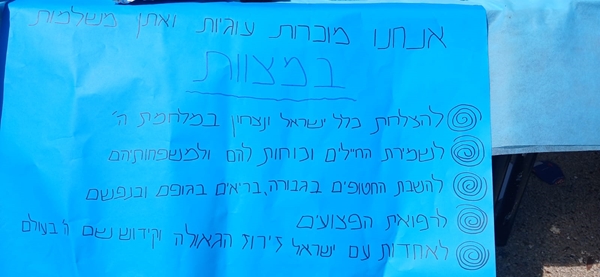 אנחנו מוכרות עוגיות ואתן משלמות
במצוות
להצלחת כלל ישראל ונצחון במלחמת ה'
לשמירת החיילים וכוחות להם ולמשפחותיהם
להשבת החטופים בגבורה, בריאים בגופם ובנפשם
לרפואת הפצועים
לאחדות עם ישראל זירוז הגאולה וקידוש שם ה' בעולם